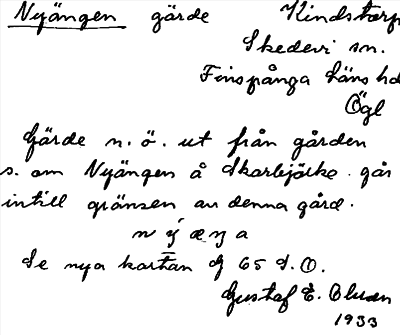 Nyängen gärde Kindstorp
Skedevi sn.
Finspånga läns hd
Ögl
Gärde n. ö. ut från gården
s. om Nyängen å Skarbjörke. går
intill gränsen av denna gård.
Se nya kartan G 65 S.O.
Gustaf E. Olsson
1933